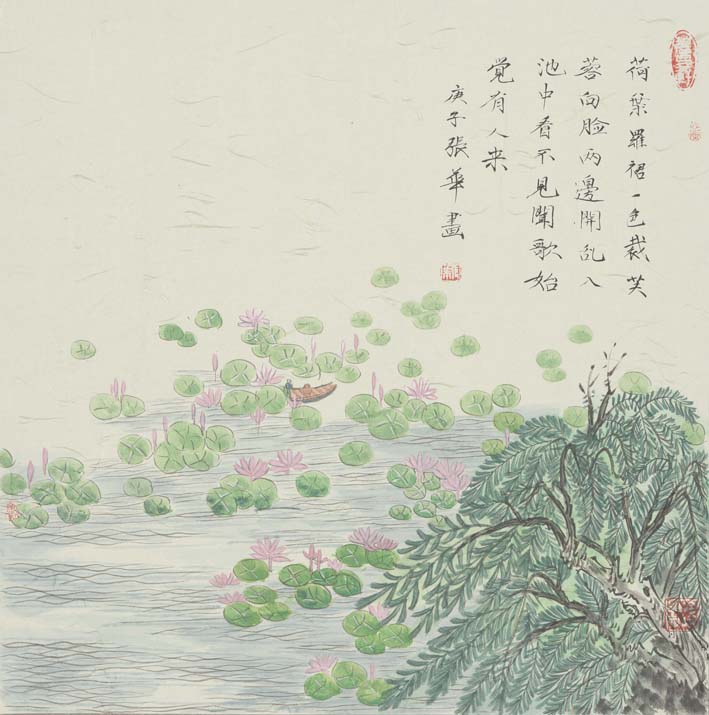 荷葉羅裙一色裁芙
蓉向脸两邊開亂入
池中看不見聞歌始
覚有人来
庚子張華畫